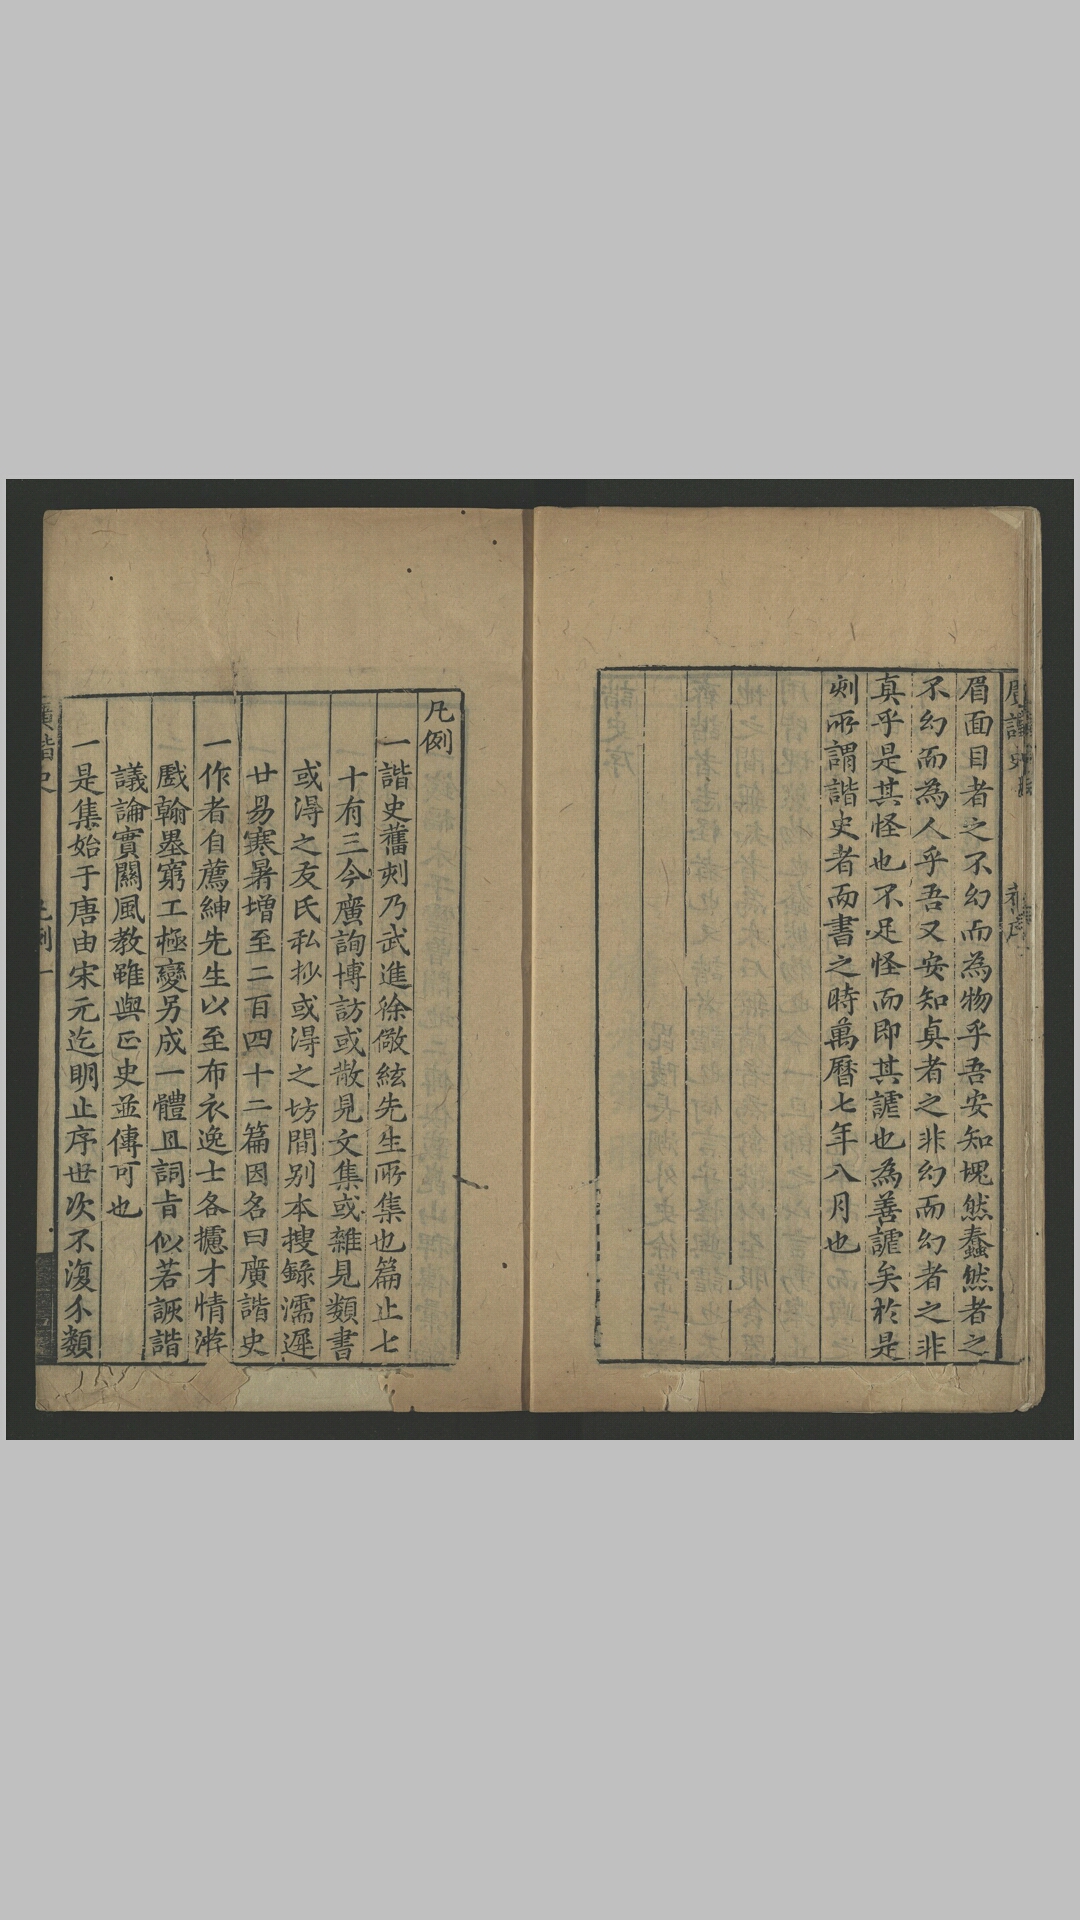 眉面目者之不幻而為物乎吾安知塊然蠢然者之
不幻而為人乎吾又安知真者之非幻而幻者之非
真乎是其怪也不足怪而即其謔也為善謔矣於是
刻所謂諧史者而書之時萬曆七年八月也
凡例
一諧史舊刻乃武進徐儆絃先生所集也篇止七
十有三今廣詢博訪或散見文集或雜見類書
或得之友氏私抄或得之坊間別本搜錄濡遲
廿易寒暑增至二百四十二篇因名曰廣諧史
一作者自薦紳先生以至布衣逸士各攄才情游
戲翰墨窮工極變另成一體且詞旨似若詼諧
議論實關風教雖與正史並傳可也
一是集始于唐由宋元迄明止序世次不復分類